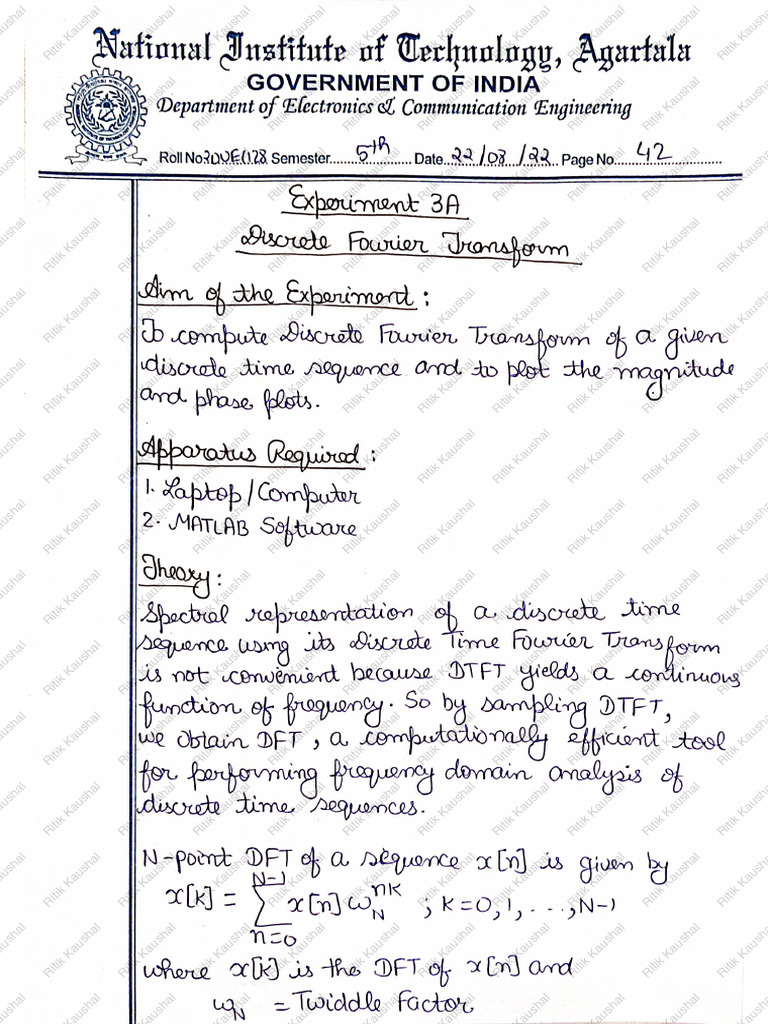 National Institute of Technology, Agartala
GOVERNMENT OF INDIA
Department of Electronics & Communication Engineering
Roll No. 20UEC128 Semester 5th Date 22/08/22 Page No. 42
Experiment 3A
Discrete Fourier Transform
Aim of the Experiment:
To compute Discrete Fourier Transform of a given
discrete time sequence and to plot the magnitude
and phase plots.
Apparatus Required:
1. Laptop/Computer
2. MATLAB Software
Theory:
Spectral representation of a discrete time
sequence using its Discrete Time Fourier Transform
is not convenient because DTFT yields a continuous
function of frequency. So by sampling DTFT,
we obtain DFT, a computationally efficient tool
for performing frequency domain analysis of
discrete time sequences.
N-point DFT of a sequence x[n] is given by
x[k] = N-1 ∑ n=0 x[n] ω_N^nk ; k=0,1,...,N-1
where x[k] is the DFT of x[n] and
ω_N = Twiddle Factor
Ritik Kaushal